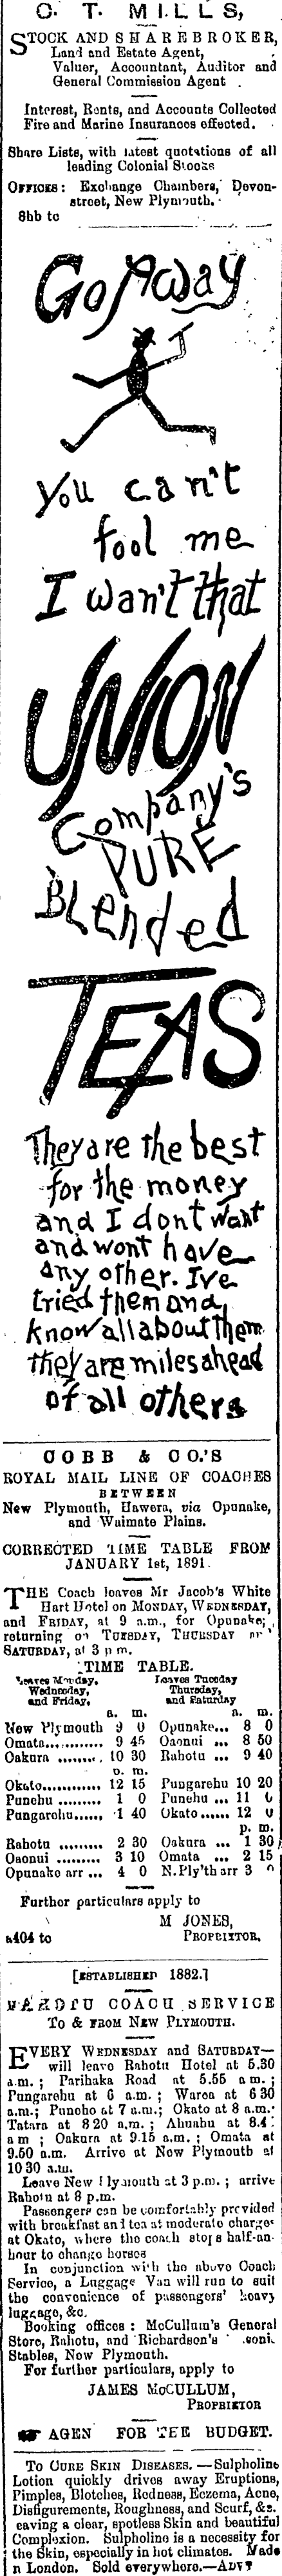 C. T. MILLS,
STOCK AND SHAREBROKER,
Land and Estate Agent,
Valuer, Accountant, Auditor and
General Commission Agent .
Interest, Rents, and Accounts Collected
Fire and Marine Insurances effected.
Share Lists, with latest quotations of all
leading Colonial Stocks
OFFICES: Exchange Chambers, Devon-
street, New Plymouth.
8bb tc
Go Away
You can't
fool me
I wan't that
UNION
Company's
PURE
Blended
TEAS
They are the best
for the money
and I dont want
and wont have
any other. I've
tried them and
know all about them
they are miles ahead
of all others
COBB & CO.'S
ROYAL MAIL LINE OF COACHES
BETWEEN
New Plymouth, Hawera, via Opunake,
and Waimate Plains.
CORRECTED TIME TABLE FROM
JANUARY 1st, 1891.
THE Coach leaves Mr Jacob's White
Hart Hotel on MONDAY, WEDNESDAY,
and FRIDAY, at 9 a.m., for Opunake;
returning on TUESDAY, THURSDAY
SATURDAY, at 3 p m.
TIME TABLE.
Leaves Monday, Leaves Tuesday
Wednesday, Thursday,
and Friday, and Saturday
a. m. a. m.
New Plymouth 9 0 Opunake... 8 0
Omata............ 9 45 Oaonui ... 8 50
Oakura ........., 10 30 Rahotu ... 9 40
p. m.
Okato............ 12 15 Pungarehu 10 20
Punehu ......... 1 0 Punehu ... 11 0
Pungarehu...... 1 40 Okato...... 12 0
p. m.
Rahotu ......... 2 30 Oakura ... 1 30
Oaonui ......... 3 10 Omata ... 2 15
Opunake arr ... 4 0 N.Ply'th arr 3 0
Further particulars apply to
M JONES,
a404 tc PROPRIETOR.
[ESTABLISHED 1882.]
COACH SERVICE
TO & FROM NEW PLYMOUTH.
EVERY WEDNESDAY and SATURDAY—
will leave Rahotu Hotel at 5.30
a.m. ; Parihaka Road at 5.55 a m. ;
Pungarehu at 6 a.m. ; Warea at 6 30
a.m.; Puneho at 7 a.m.; Okato at 8 a.m.
Tatara at 8 20 a.m. ; Ahuahu at 8.4
a m ; Oakura at 9.15 a.m. ; Omata at
9.50 a.m. Arrive at New Plymouth at
10 30 a.m.
Leave New Plymouth at 3 p.m. ; arrive
Rahotu at 8 p.m.
Passengers can be comfortably provided
with breakfast and tea at moderate charges
at Okato, where the coach stops half-an-
hour to change horses
In conjunction with the above Coach
Service, a Luggage Van will run to suit
the convenience of passengers' heavy
luggage, &c.
Booking offices : McCullum's General
Store, Rahotu, and Richardson's
Stables, New Plymouth.
For further particulars, apply to
JAMES McCULLUM,
PROPRIETOR
AGEN FOR THE BUDGET.
To CURE SKIN DISEASES.—Sulpholine
Lotion quickly drives away Eruptions,
Pimples, Blotches, Redness, Eczema, Acne,
Disfigurements, Roughness, and Scurf, &c.
eaving a clear, spotless Skin and beautiful
Complexion. Sulpholine is a necessity for
the Skin, especially in hot climates. Made
n London. Sold everywhere.—ADVT